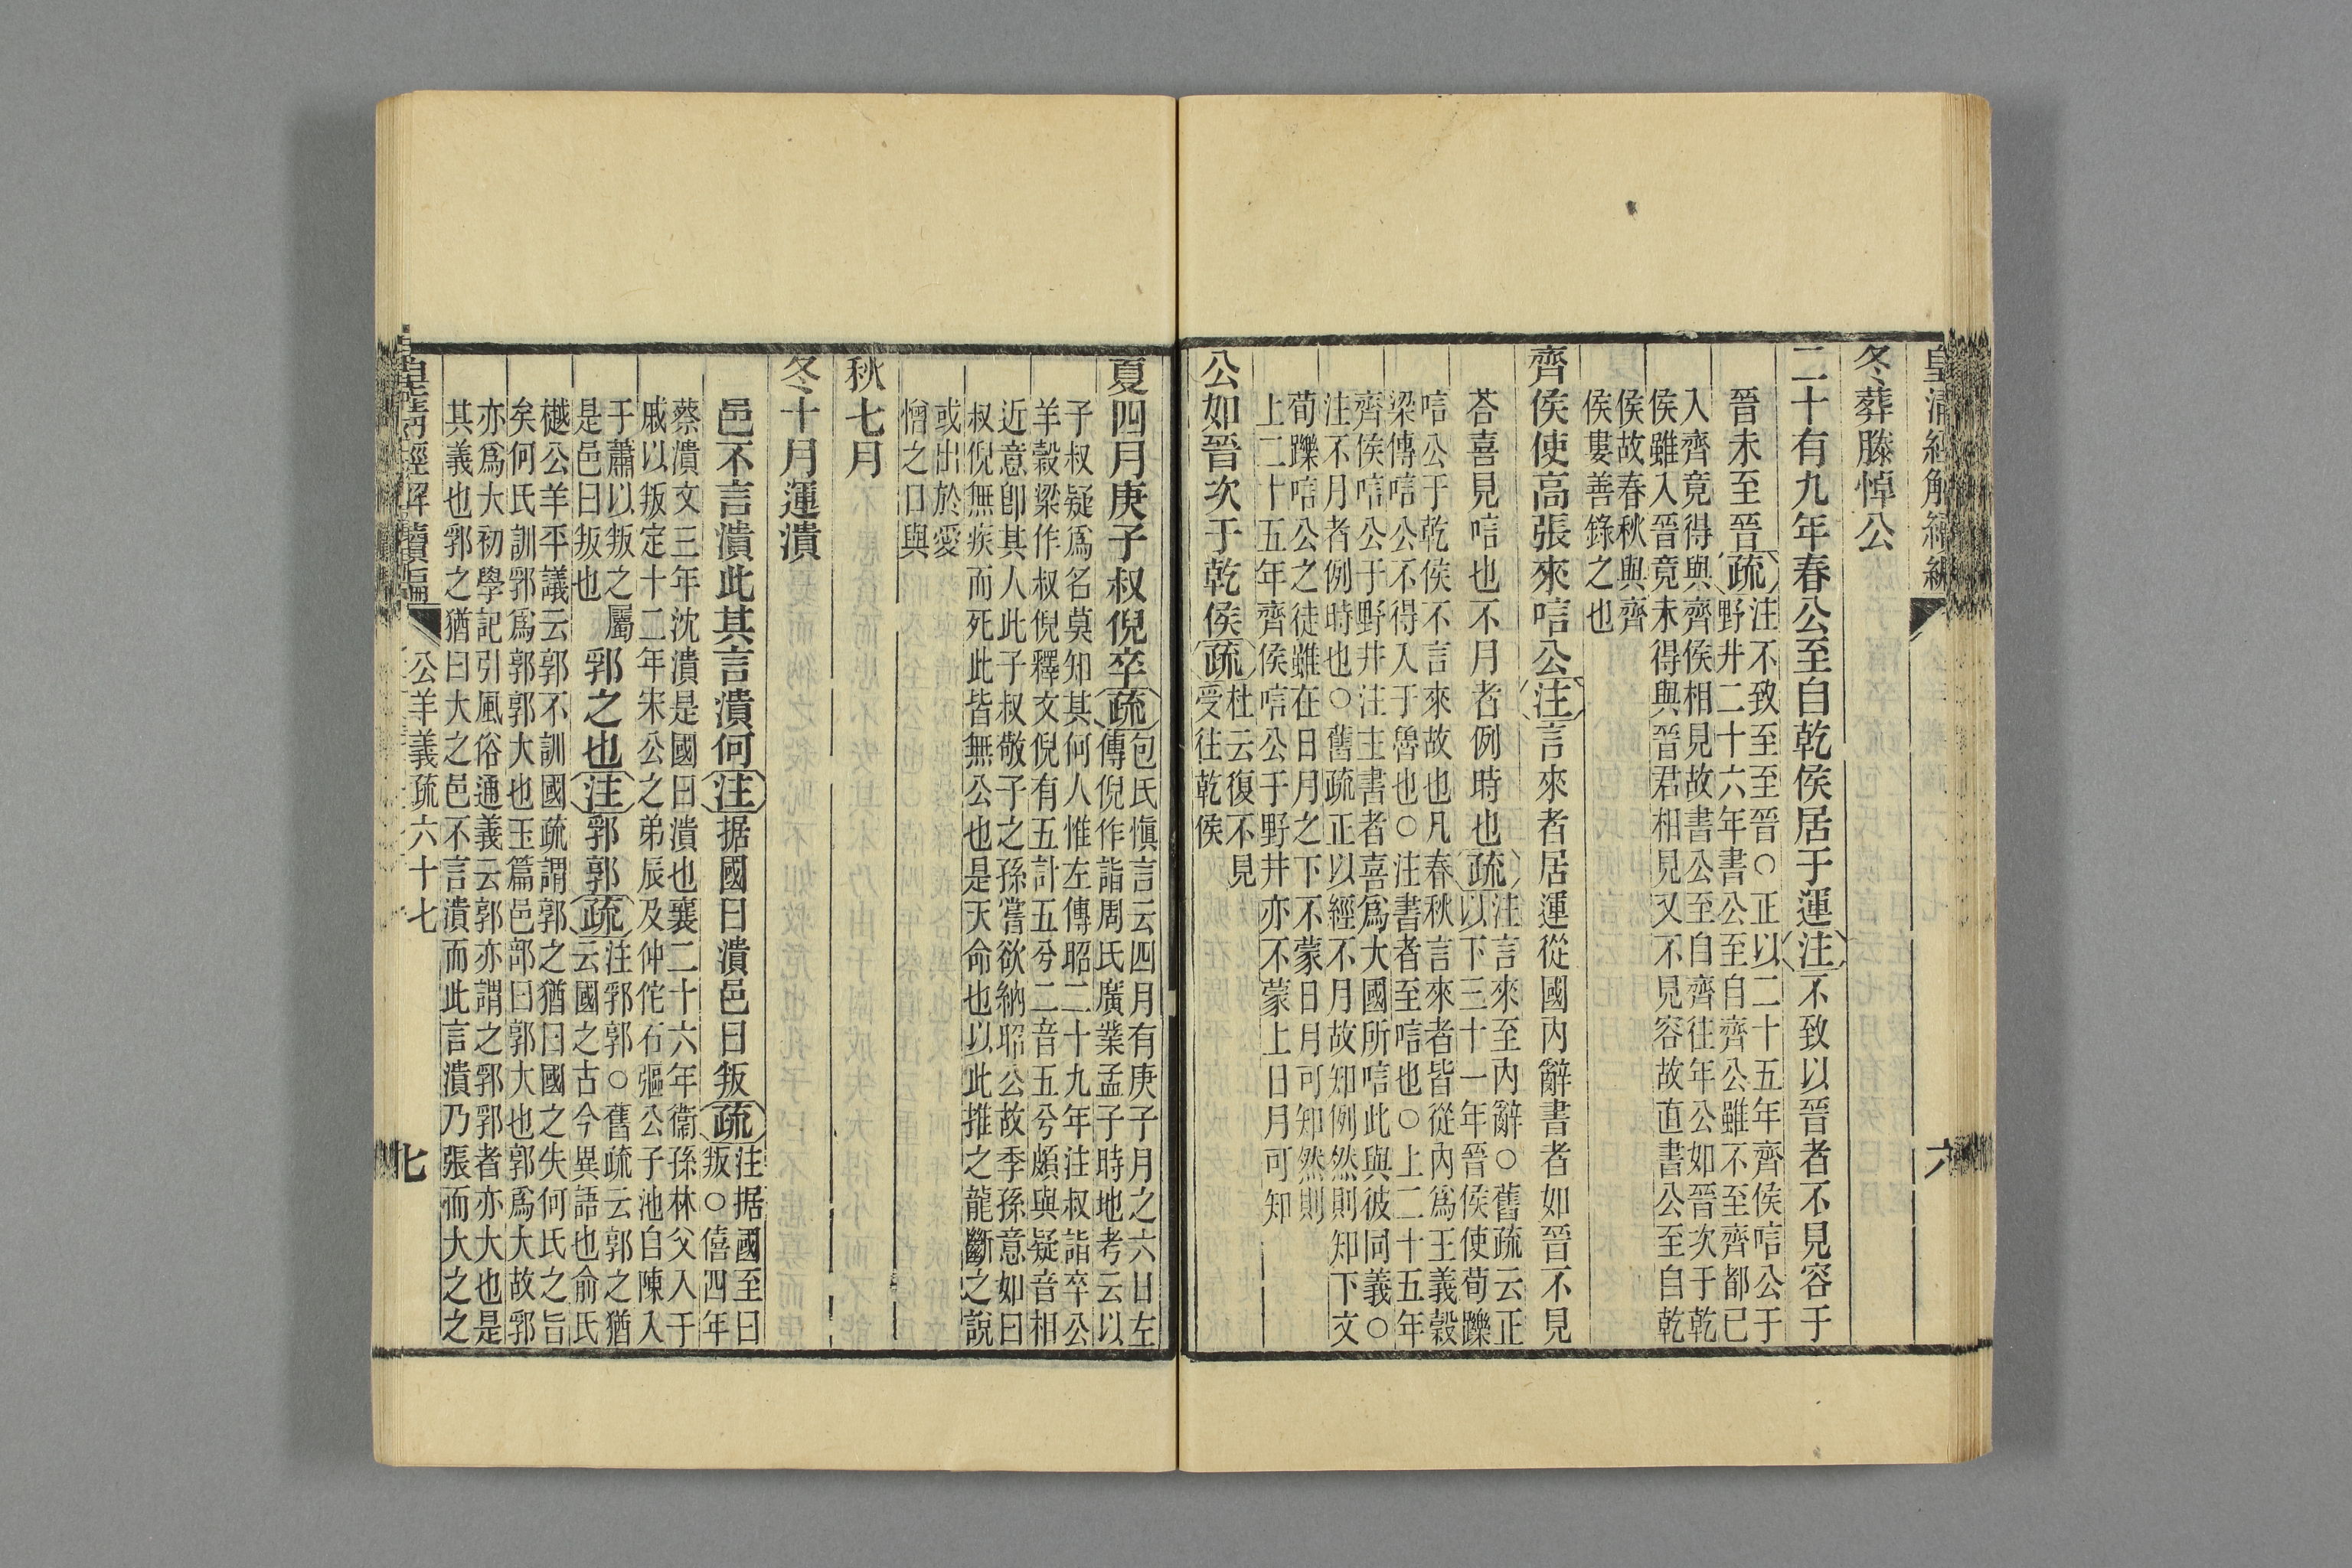 冬葬滕悼公
二十有九年春公至自乾侯居于運注不致以晉者不見容于
晉未至晉疏注不致至至晉○正以二十五年齊侯唁公于
野井二十六年書公至自齊公雖不至齊都已
入齊竟得與齊侯相見故書公至自齊往年公如晉次于乾
侯雖入晉竟未得與晉君相見又不見容故直書公至自乾
侯故春秋與齊
侯婁善錄之也
齊侯使高張來唁公注言來者居運從國內辭書者如晉不見
荅喜見唁也不月者例時也疏注言來至內辭○舊疏云正
以下三十一年晉侯使荀躒
唁公于乾侯不言來故也凡春秋言來者皆從內爲王義穀
梁傳唁公不得入于魯也○注書者至唁也○上二十五年
齊侯唁公于野井注主書者喜爲大國所唁此與彼同義○
注不月者例時也○舊疏正以經不月故知例然則知下文
荀躒唁公之徒雖在日月之下不蒙日月可知然則
上二十五年齊侯唁公于野井亦不蒙上日月可知
公如晉次于乾侯疏杜云復不見
受往乾侯
夏四月庚子叔倪卒疏包氏愼言云四月有庚子月之六日左
傳倪作詣周氏廣業孟子時地考云以
子叔疑爲名莫知其何人惟左傳昭二十九年注叔詣卒公
羊穀梁作叔倪釋文倪有五計五兮二音五兮頗與疑音相
近意卽其人此子叔敬子之孫嘗欲納昭公故季孫意如曰
叔倪無疾而死此皆無公也是天命也以此推之龍斷之說
或出於愛
憎之口與
秋七月
冬十月運潰
邑不言潰此其言潰何注据國曰潰邑曰叛疏注据國至曰
叛○僖四年
蔡潰文三年沈潰是國曰潰也襄二十六年衞孫林父入于
戚以叛定十二年宋公之弟辰及仲佗石彄公子池自陳入
于蕭以叛之屬
是邑曰叛也郛之也注郛郭疏注郛郭○舊疏云郭之猶
云國之古今異語也俞氏
樾公羊平議云郭不訓國疏謂郭之猶曰國之失何氏之旨
矣何氏訓郛爲郭郭大也玉篇邑部曰郭大也郭爲大故郛
亦爲大初學記引風俗通義云郭亦謂之郛郛者亦大也是
其義也郛之猶曰大之邑不言潰而此言潰乃張而大之之
皇淸經解續編 公羊義疏六十七 七